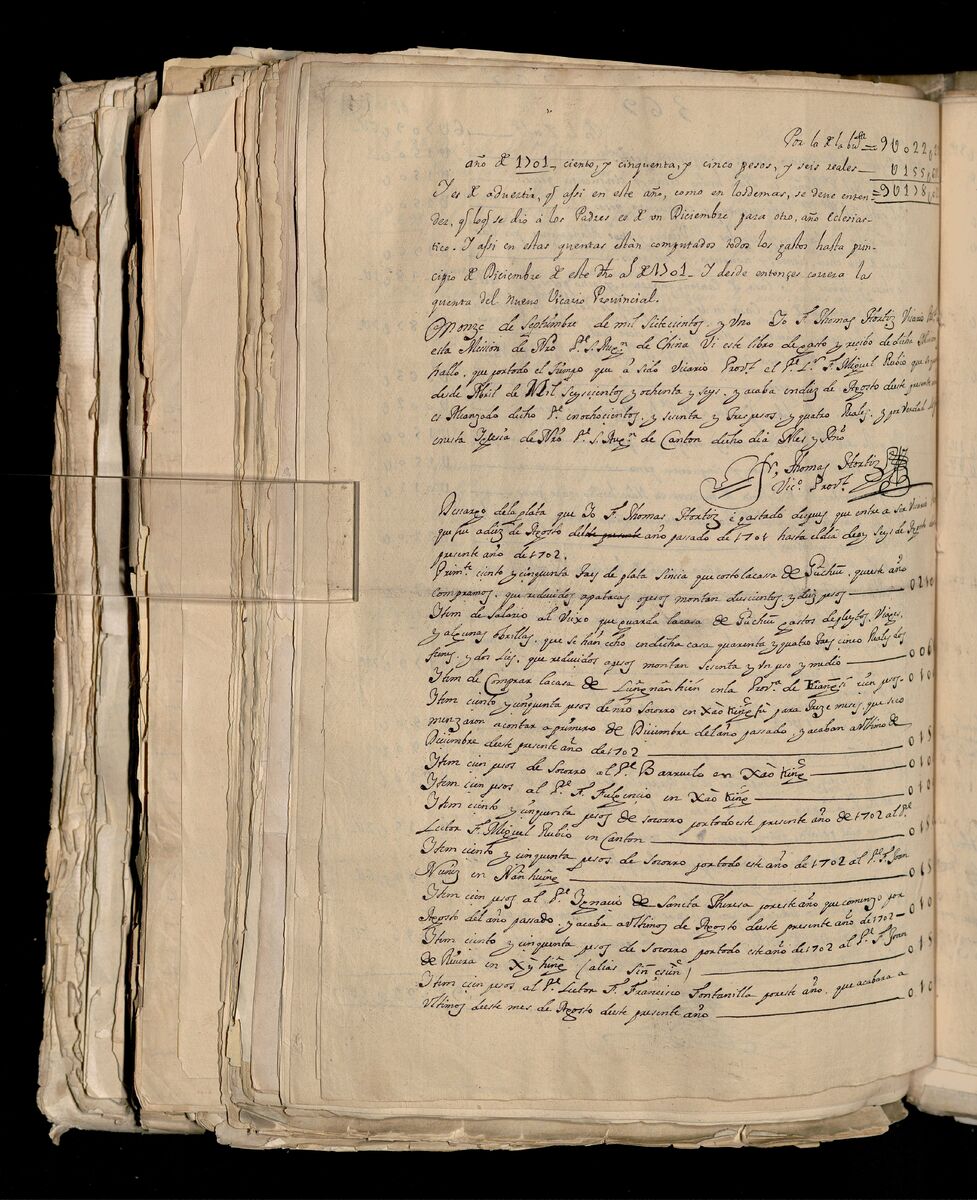 Por la de la bu.lta = 9U022,
año de 1701 - ciento, y cinquenta, y cinco pesos, y seis reales — U155,6
Y es de advertir, q assi en este año, como en los demas, se deve enten- = 9U178,
der, q lo q se dio á los Padres es de un Diciembre para otro, año Eclesias-
tico. Y assi en estas quentas están computados todos los gastos hasta prin-
cipio de Diciembre de este dho al de 1701 - Y desde entonçes correra las
quenta del Nuevo Vicario Provincial.
Onze de Septumbre de mil Sietecientos y Uno Yo F. Thomas Hortiz Vicario
esta Mission de Nro P.e S. Aug.n de China Vi este libro de gasto y recibo de dicha
hallo, que por todo el tiempo que à sido Vicario Prov.l el P.e L.r F. Miguel Rubio que
desde Abril de Mil Seyscientos y ochenta y seys, y acaba en diez de Agosto deste presente
es Alcanzado dicho P.e en ochocientos, y sesenta y tres pesos, y quatro Reales, y por Verdad
en esta Iglesia de Nro P.e S. Aug.n de Canton dicho dia Mes y Año
Fr. Thomas Hortiz
Vic.o Prov.l
Descargo de la plata que Yo F. Thomas Hortiz è gastado despues que entre a ser Vicario
que fue a diez de Agosto del año passado de 1701 hasta el dia diez y Seys de Agosto
presente año de 1702.
Prim.te ciento y cinquenta taes de plata Sinica que costo la casa de que este año
compramos, que reduzidos a patacas o pesos montan duscientos, y diez pesos — 0210
Item de Salario al Viexo que guarda la casa de gastos de pleytos, Viages,
y algunas obrillas, que se hán echo en dicha casa quarenta y quatro taes cinco Reales dos
, y dos , que reduzidos a pesos montan Sesenta y Un peso y medio — 006
Item de Comprar la casa de en la Prov.a de Kiañ Sí cien pesos — 010
Item ciento y cinquenta pesos de nro Socorro en Xáo Kiñg fú para treze meses, que se co
menzaron a contar a primero de Diciembre del año passado, y acaban a Ultimo de
Diciembre deste presente año de 1702 — 015
Item cien pesos de Socorro al P.e Barruelo en Xáo Kiñg — 010
Item cien pesos al P.e F. Fulgencio en Xáo Kiñg — 010
Item ciento y cinquenta pesos de socorro por todo este presente año de 1702 al P.e
Lector F. Miguel Rubio en Canton — 015
Item ciento y cinquenta pesos de Socorro por todo este año de 1702 al P.e F. Joan
Nuñez en Nán hiüñg — 015
Item cien pesos al P.e Ignacio de Sancta Theresa por este año que comenzo por
Agosto del año passado, y acaba a Ultimos de Agosto deste presente año de 1702 — 010
Item ciento y cinquenta pesos de Socorro por todo este año de 1702 al P.e F. Joan
de Rivera en Xý Kiñg (alias Siñ cuñ) — 015
Item cien pesos al P.e Lector F. Francisco Fontanilla por este año, que acabara a
Ultimos deste mes de Agosto deste presente año — 010